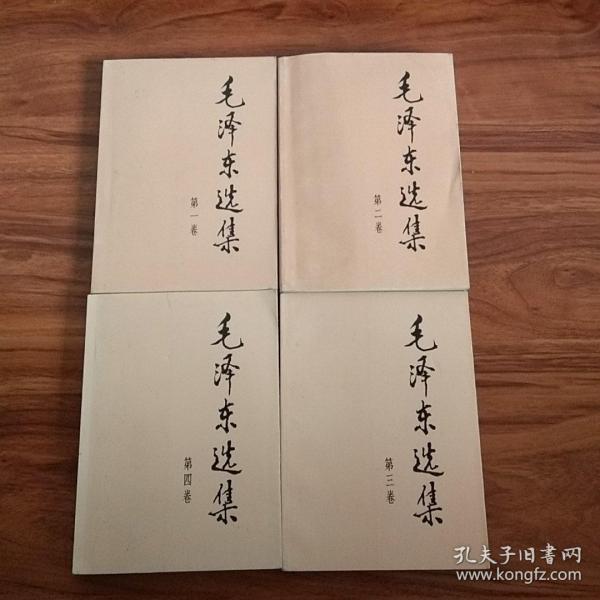 毛泽东选集
第一卷
毛泽东选集
第二卷
毛泽东选集
第四卷
毛泽东选集
第三卷
孔夫子旧書网
www.kongfz.com